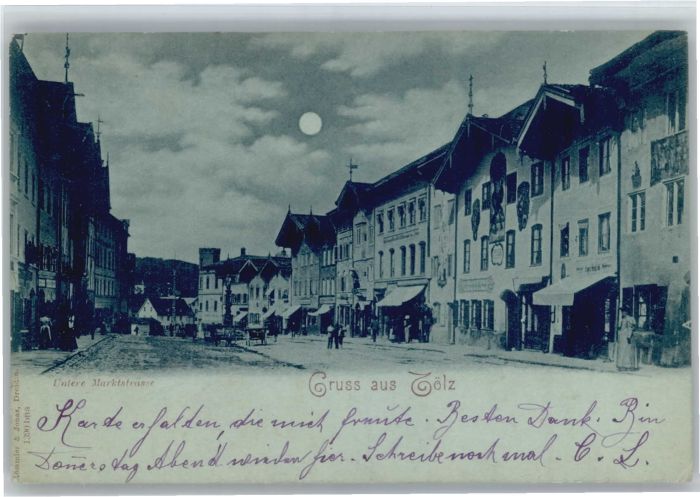 Untere Marktstrasse
Gruss aus Tölz
Karte erhalten, die mich freute. Besten Dank. Bin
Donnerstag Abend wieder hier. Schreibe noch mal. C. L.
Stengler & Jonas, Dresden